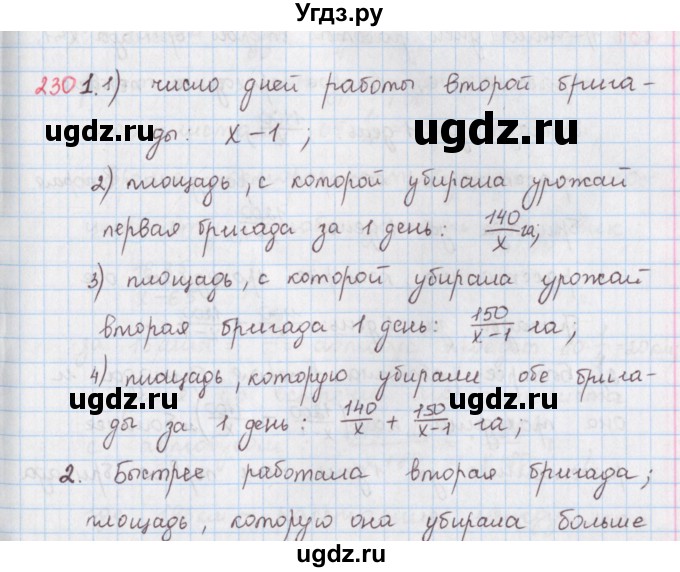 Угдз.ру
230 1. 1) число дней работы второй брига-
ugdz.ru ugdz.ru
ды: x-1;
2) площадь, с которой убирала урожай
первая бригада за 1 день: 140/x га;
3) площадь, с которой убирала урожай
вторая бригада 1 день: 150/x-1 га;
4) площадь, которую убирали обе брига-
ugdz.ru ugdz.ru
ды за 1 день: 140/x + 150/x-1 га;
2. Быстрее работала вторая бригада;
площадь, которую она убирала больше
ugdz.ru